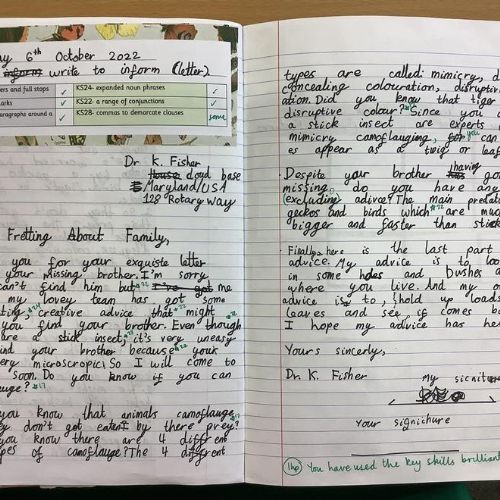 ay 6th October 2022
inform write to inform (letter)
ers and full stops ✓ KS24- expanded noun phrases ✓
arks ✓ KS22- a range of conjunctions ✓
aragraphs around a KS28- commas to demarcate clauses some
Dr K. Fisher
House dord base
Maryland/USA
128 Rotary way
Fretting About Family,
you for your exquiste letter
your missing brother. I'm sorry
can't find him but me
my lovey team has got some
ting creative advice that might
you find your brother. Even though
are a stick insect, it's very uneasy
ind your brother because your
very microscropic! So I will come to
soon. Do you know if you can
uge?
you know that animals camoflauge
ey don't get eaten by there prey?
you know there are 4 diffrent
pes of camoflauge? The 4 diffrent
types are called: mimicry, d
concealing colouration, disruptiv
ation. Did you know that tige
disruptive colour? Since you a
a stick insect are experts
mimicry camoflauging, for can yo
es appear as a twig or leaf
Despite your brother having go
missing, do you have any
(excluding) advice? The main predat
geckos and birds which are much
bigger and faster than stick
Finally, here is the last part
advice. My advice is to loo
in some holes and bushes
where you live. And my o
advice is to, hold up load
leaves and see if comes b
I hope my advice has he
Yours sincerly,
Dr. K. Fisher my sicnitur
your signichure
You have used the key skills brillian